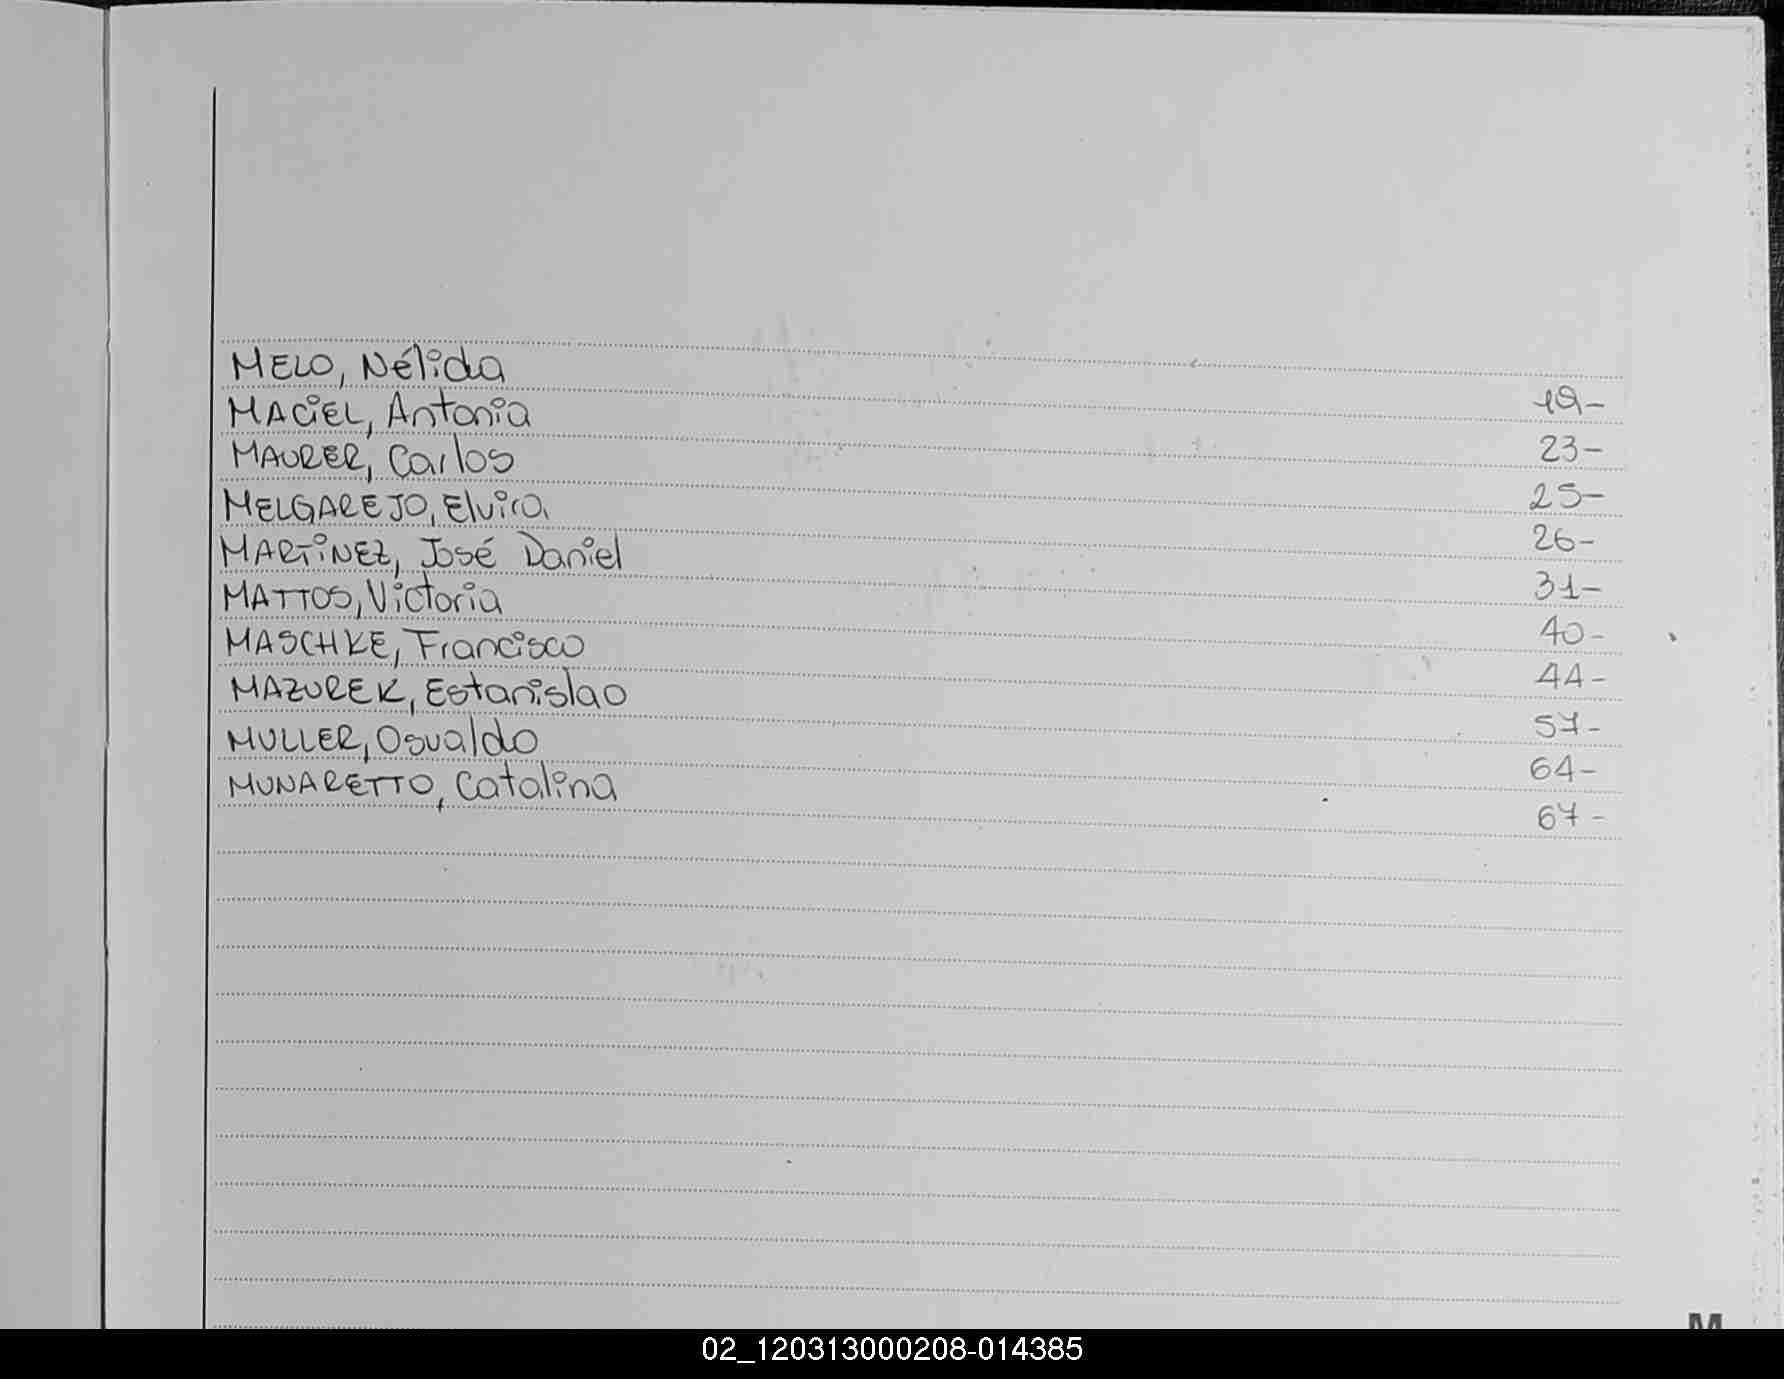 MELO, Nélida 19-
MACIEL, Antonia 23-
MAURER, Carlos 25-
MELGAREJO, Elvira 26-
MARTINEZ, José Daniel 31-
MATTOS, Victoria 40-
MASCHKE, Francisco 44-
MAZUREK, Estanislao 57-
MULLER, Osvaldo 64-
MUNARETTO, Catalina 67-
M
02_120313000208-014385